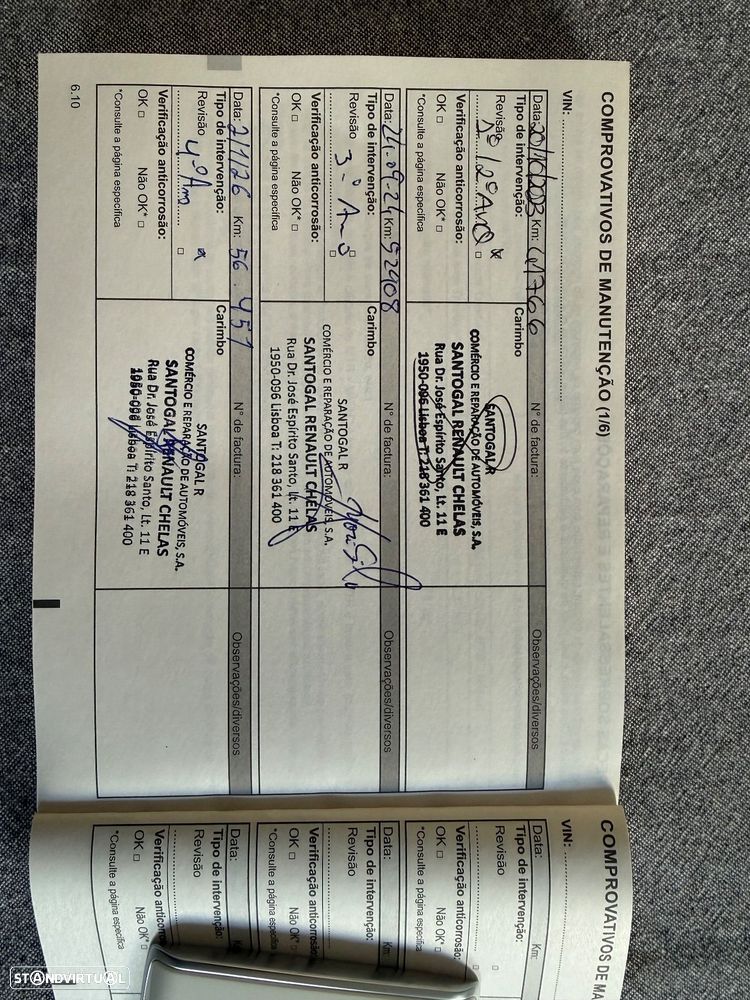 COMPROVATIVOS DE MANUTENÇÃO (1/6)
VIN:
Data: 20/10/2023 Km: 41766 N° de factura: Observações/diversos
Tipo de intervenção: Carimbo
Revisão
1º/2º Ano
Verificação anticorrosão:
OK Não OK*
*Consulte a página específica
SANTOGAL R
COMÉRCIO E REPARAÇÃO DE AUTOMÓVEIS, S.A.
SANTOGAL RENAULT CHELAS
Rua Dr. José Espírito Santo, Lt. 11 E
1950-096 Lisboa T: 218 361 400
Data: 24-09-24 Km: 52908 N° de factura: Observações/diversos
Tipo de intervenção: Carimbo
Revisão
3º Ano
Verificação anticorrosão:
OK Não OK*
*Consulte a página específica
SANTOGAL R
COMÉRCIO E REPARAÇÃO DE AUTOMÓVEIS, S.A.
SANTOGAL RENAULT CHELAS
Rua Dr. José Espírito Santo, Lt. 11 E
1950-096 Lisboa T: 218 361 400
Data: 2/1/26 Km: 56.457 N° de factura: Observações/diversos
Tipo de intervenção: Carimbo
Revisão
4º Ano
Verificação anticorrosão:
OK Não OK*
*Consulte a página específica
SANTOGAL R
COMÉRCIO E REPARAÇÃO DE AUTOMÓVEIS, S.A.
SANTOGAL RENAULT CHELAS
Rua Dr. José Espírito Santo, Lt. 11 E
1950-096 Lisboa T: 218 361 400
6.10
COMPROVATIVOS DE MA
VIN:
Data: Km:
Tipo de intervenção:
Revisão
Verificação anticorrosão:
OK Não OK*
*Consulte a página específica
Data: Km:
Tipo de intervenção:
Revisão
Verificação anticorrosão:
OK Não OK*
*Consulte a página específica
Data:
Tipo de intervenção:
Revisão
Verificação anticorro
OK Não OK*
*Consulte a página específica
STANDVIRTUAL